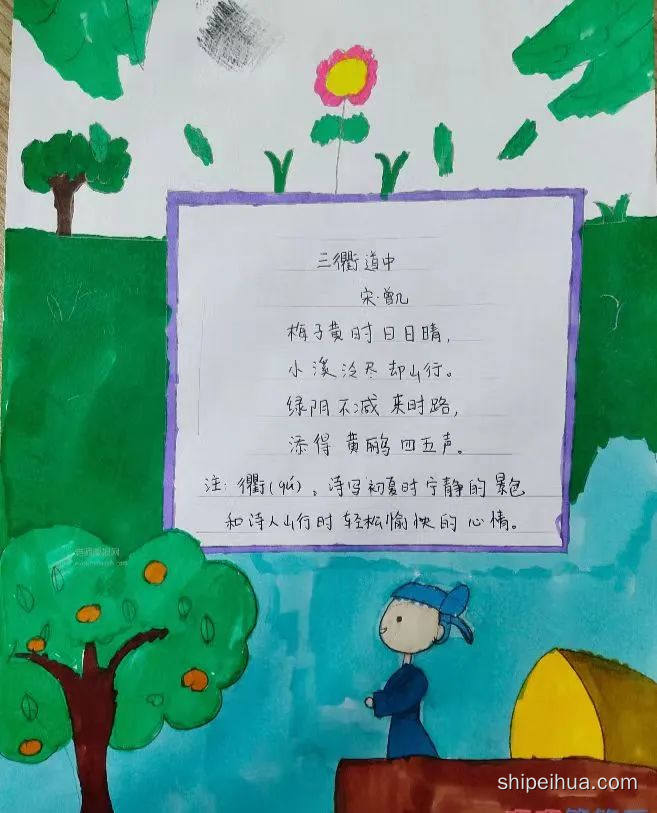 三衢道中
宋·曾几
梅子黄时日日晴,
小溪泛尽却山行。
绿阴不减来时路,
添得黄鹂四五声。
注:衢(qú)。诗写初夏时宁静的景色
和诗人山行时轻松愉快的心情。
shipeihua.com